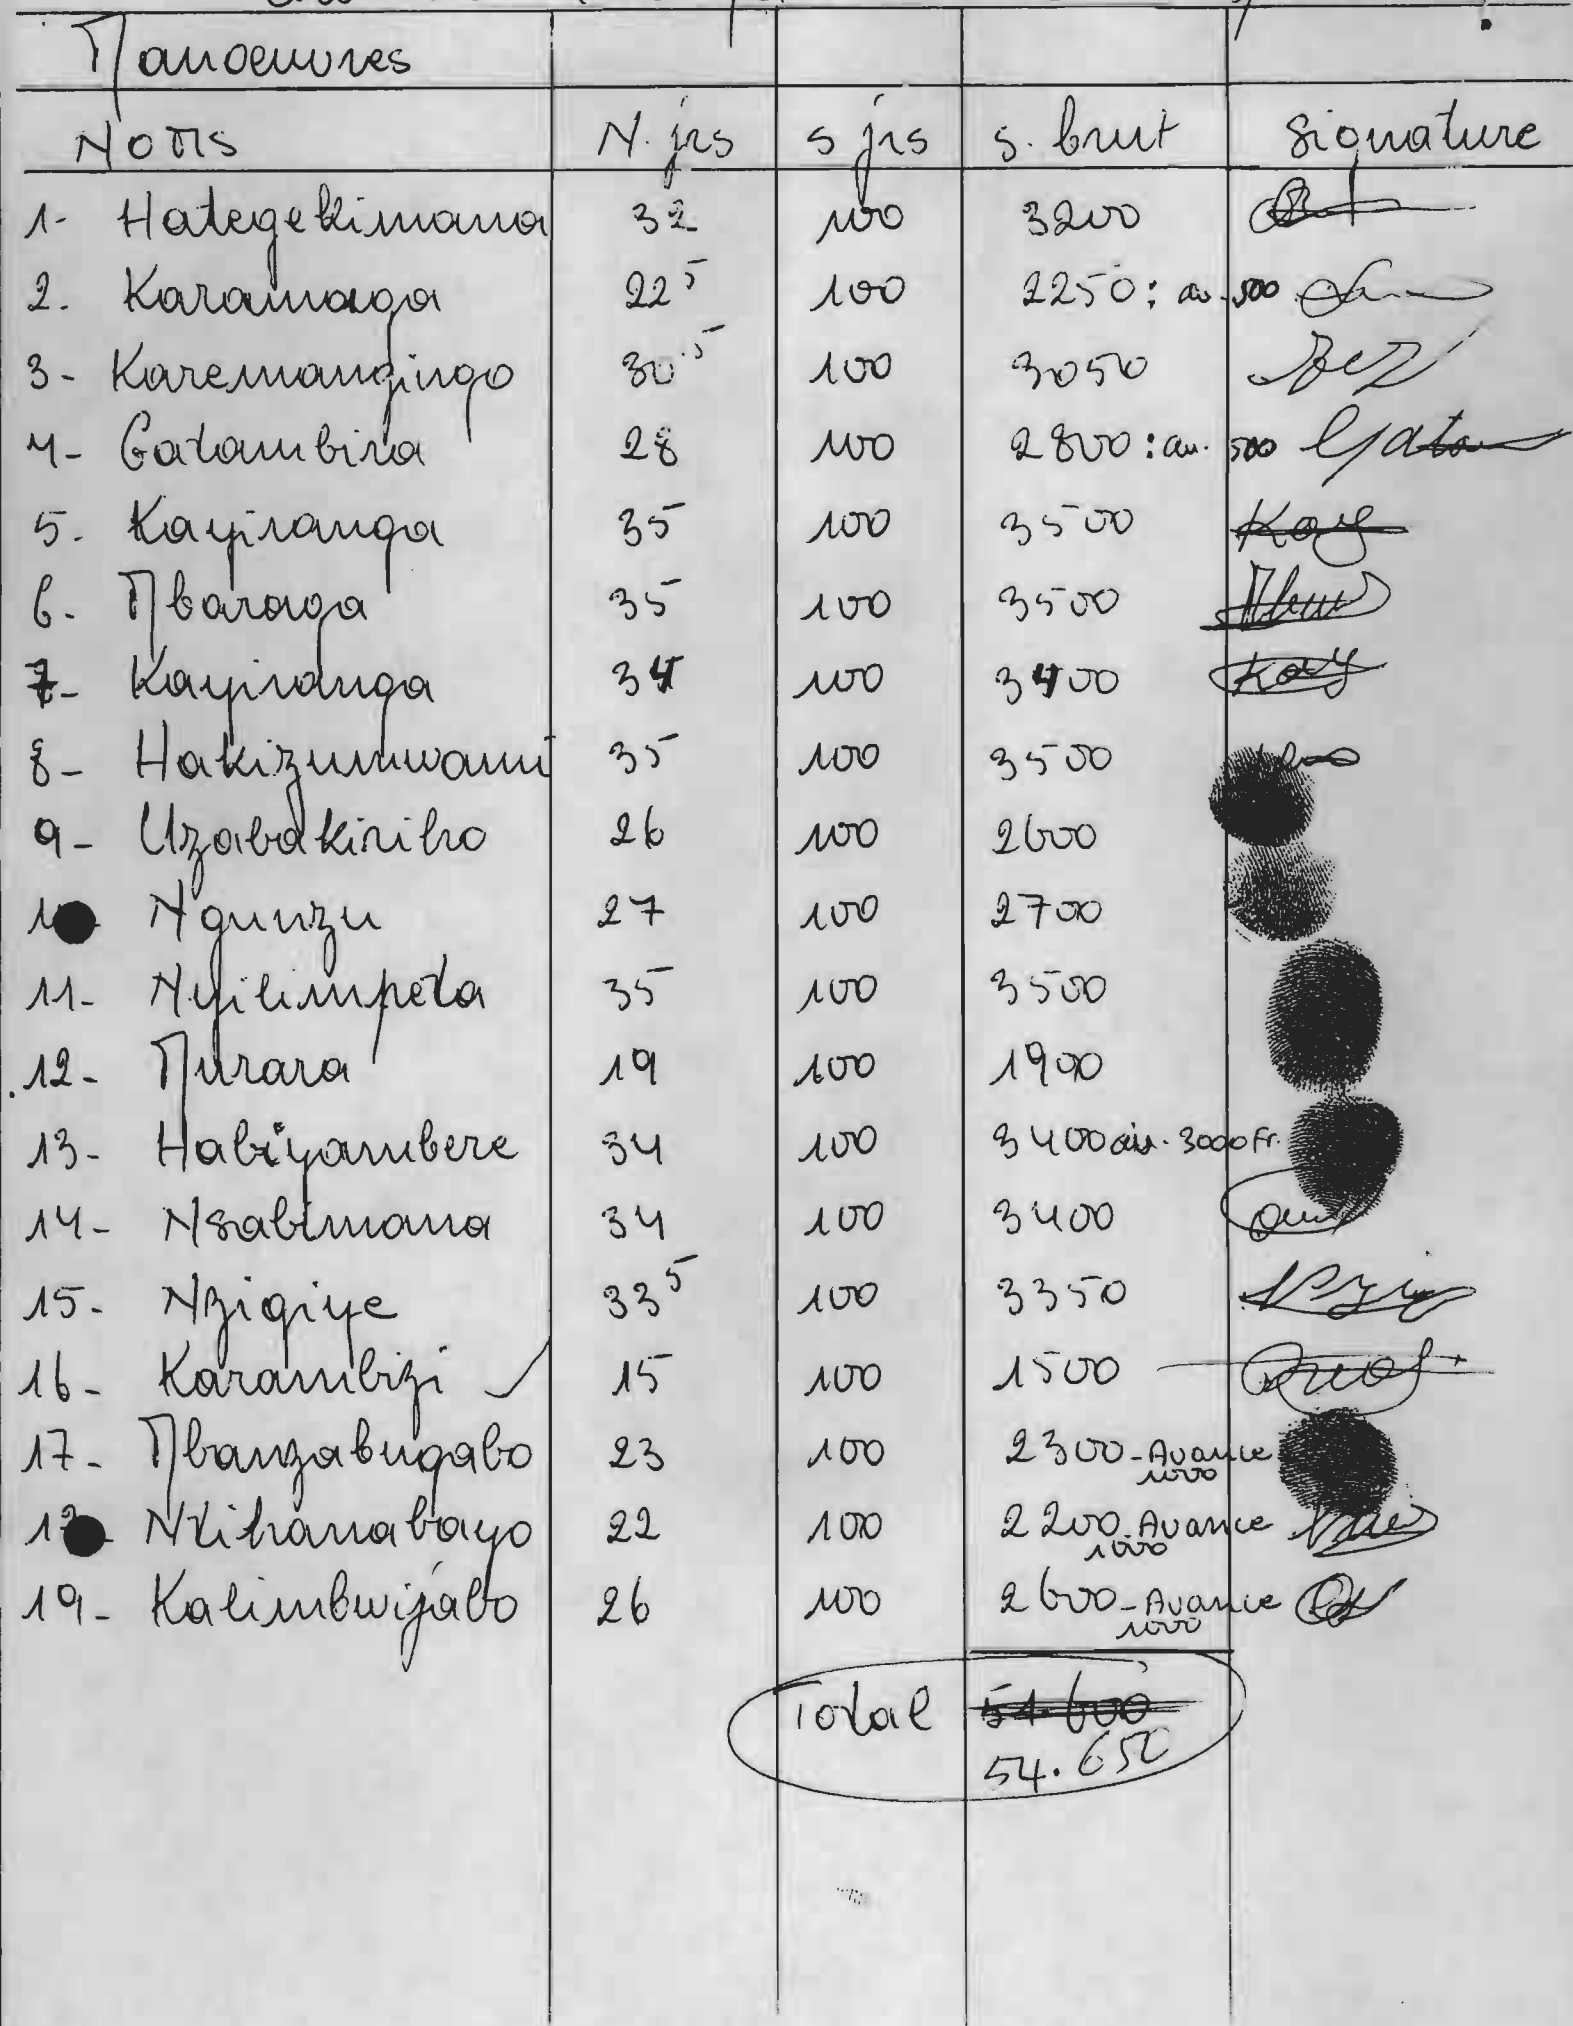 Manoeuvres
Noms N. jrs s jrs s. brut signature
1- Hategekimana 32 100 3200
2. Karamaga 22 5 100 2250: av. 500
3- Karemangingo 30.5 100 3050
4- Gatambira 28 100 2800: av. 500 Gata
5. Kayiranga 35 100 3500 Kay
6- Mbaraga 35 100 3500
7- Kayiranga 34 100 3400 Kay
8- Hakizumwami 35 100 3500
9- Uzabakiriho 26 100 2600
10- Ngunzu 27 100 2700
11- Nyilimpeta 35 100 3500
12- Murara 19 100 1900
13- Habiyambere 34 100 3400 av. 3000 Fr.
14- Nsabimana 34 100 3400
15- Nzigiye 33 5 100 3350
16- Karambizi 15 100 1500
17- Mbanzabugabo 23 100 2300 - Avance
1000
18- Ntihanabayo 22 100 2200 - Avance
1000
19- Kalimbwijabo 26 100 2600 - Avance
1000
Total 51.600
54.650